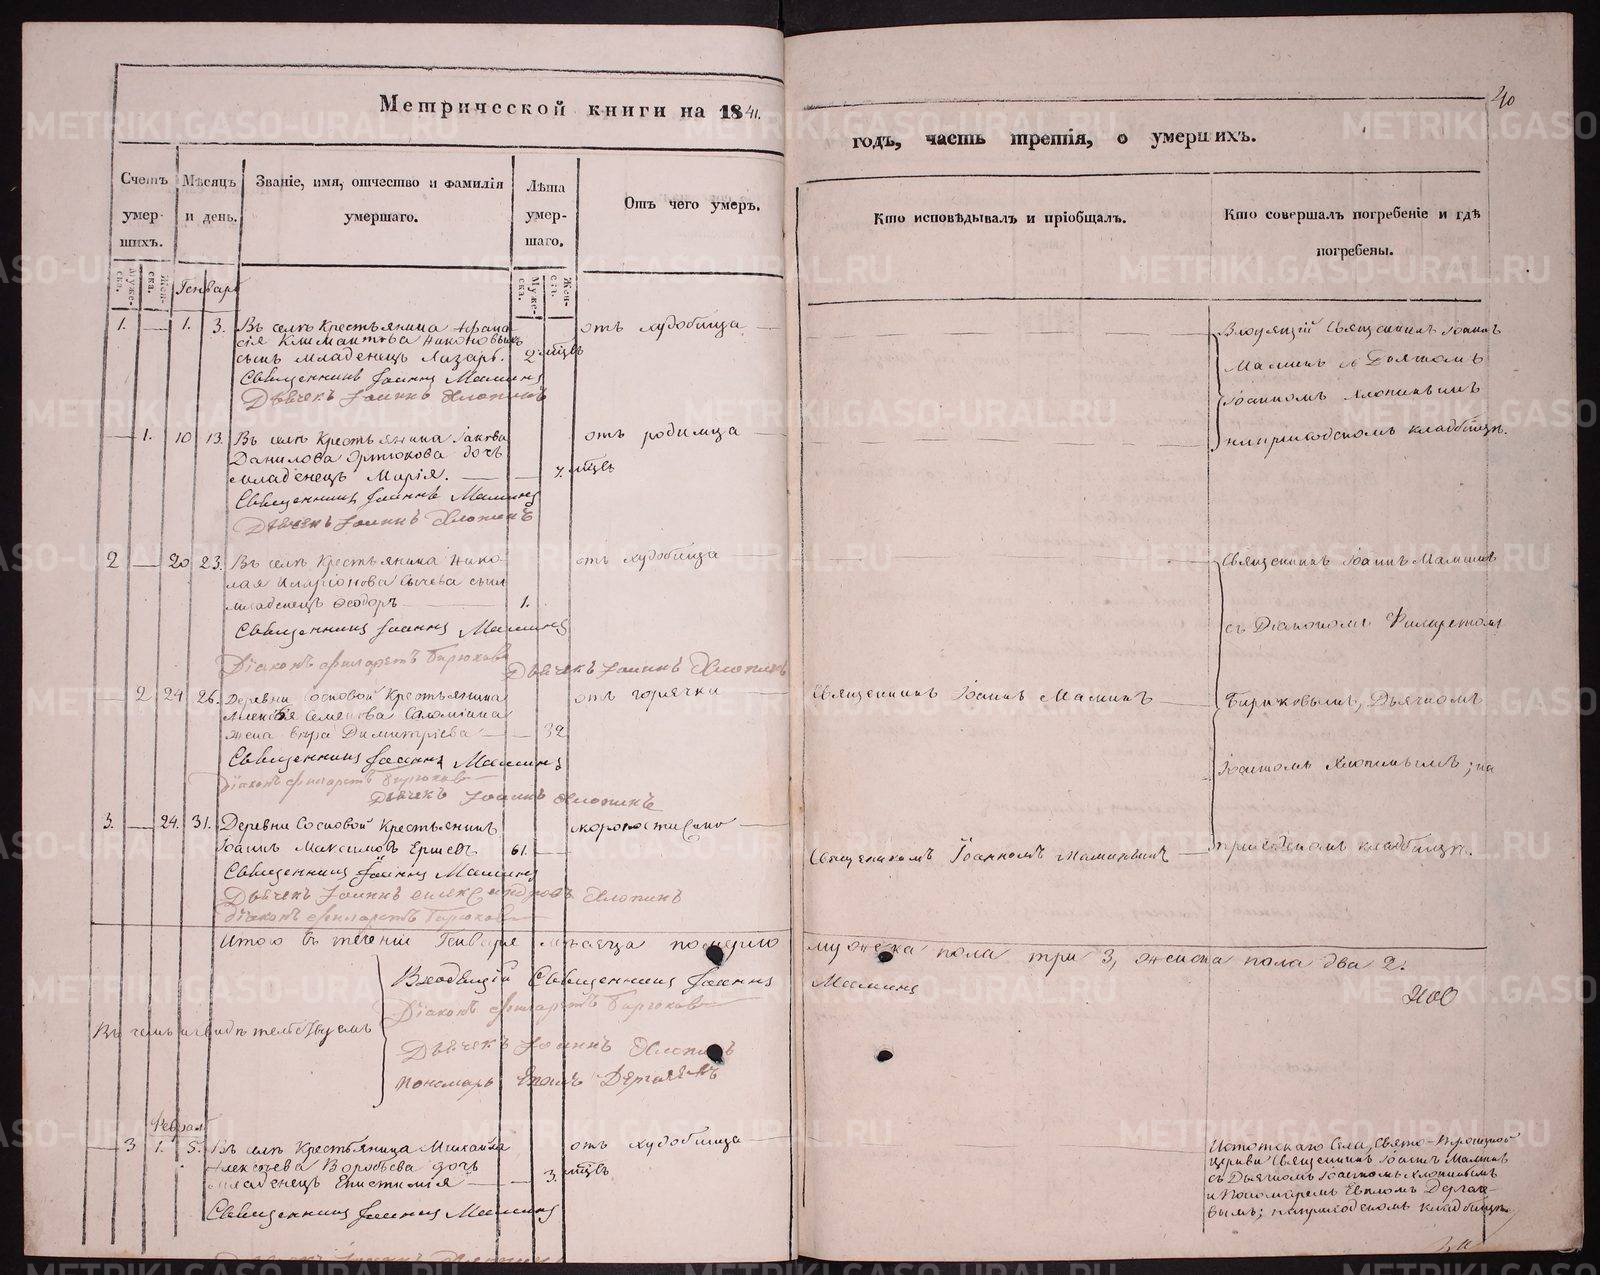 Метрической книги на 1841.
годъ, часть третія, о умершихъ.
40
Счетъ умер-
шихъ.
Мѣсяцъ
и день.
Званіе, имя, отчество и фамилія
умершаго.
Лѣта
умер-
шаго.
Отъ чего умеръ.
Кто исповѣдывалъ и пріобщалъ.
Кто совершалъ погребеніе и гдѣ
погребены.
Муже-
ска.
Жен-
ска.
Муже-
ска.
Жен-
ск.
Генварь
1. — 1. 3. Въ селѣ Крестьянина Афана
сія Климантова
сынъ младенецъ Лазарь. 2 мцвъ
отъ худобища
Священникъ Іоаннъ Маминъ
Дьячекъ Іоаннъ Хлопинъ
Священникъ Іоаннъ
Маминъ съ Дьячкомъ
Іоанномъ Хлопинымъ
на приходскомъ кладбищѣ.
— 1. 10 13. Въ селѣ Крестьянина Іакова
Данилова дочь
младенецъ Марія. — 7. мцвъ
отъ родимца
Священникъ Іоаннъ Маминъ
Дьячекъ Іоаннъ Хлопинъ
2 — 20 23. Въ селѣ Крестьянина Нико-
лая Иларіонова Сычева сынъ
младенецъ Ѳеодоръ 1.
отъ худобища
Священникъ Іоаннъ Маминъ
Діаконъ Филаретъ Бирюковъ
Дьячекъ Іоаннъ Хлопинъ
Священникъ Іоаннъ Маминъ
съ Діакономъ Филаретомъ
Бирюковымъ, Дьячкомъ
Іоанномъ Хлопинымъ; на
приходскомъ кладбищѣ.
— 2 24 26. Деревни Сосновой Крестьянина
Алексія Семенова Саломіина
жена Вѣра Димитріева — 32
отъ горячки
Священникъ Іоаннъ Маминъ
Священникъ Іоаннъ Маминъ
Діаконъ Филаретъ Бирюковъ
Дьячекъ Іоаннъ Хлопинъ
3. — 24. 31. Деревни Сосновой Крестьянинъ
Іоаннъ Максимовъ Ершевъ 61. —
скоропостижно
Священникомъ Іоанномъ Маминымъ
Священникъ Іоаннъ Маминъ
Дьячекъ Іоаннъ Александровъ Хлопинъ
Діаконъ Филаретъ Бирюковъ
Итого въ теченіи Генваря мѣсяца померло мужеска пола три 3, женска пола два 2.
Священникъ Іоаннъ Маминъ
Діаконъ Филаретъ Бирюковъ
Въ чемъ и свидѣтельствуемъ
Дьячекъ Іоаннъ Хлопинъ
Пономарь
Февраль
— 3 1. 5. Въ селѣ Крестьянина Михаила
Алексѣева Воробьева дочь
младенецъ Епистимія — 3. мцвъ
отъ худобища
Священникъ Іоаннъ Маминъ
села, Свято-Троицкой
церкви Священникъ Іоаннъ Маминъ
съ Дьячкомъ Іоанномъ Хлопинымъ
и Пономаремъ Евпломъ Дерга-
вымъ; на приходскомъ кладбищѣ.
METRIKI.GASO-URAL.RU